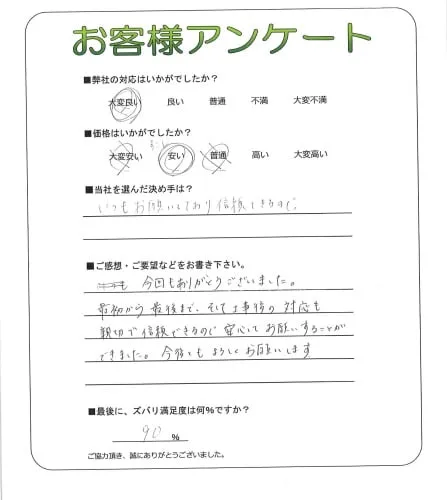 お客様アンケート
■弊社の対応はいかがでしたか？
大変良い 良い 普通 不満 大変不満
■価格はいかがでしたか？
大変安い 安い 普通 高い 大変高い
■当社を選んだ決め手は？
いつもお願いしており信頼できるので。
■ご感想・ご要望などをお書き下さい。
も 今回もありがとうございました。
最初から最後まで、そして工事後の対応も
親切で信頼できるので安心してお願いすることが
できました。今後ともよろしくお願いします
■最後に、ズバリ満足度は何％ですか？
90 ％
ご協力頂き、誠にありがとうございました。